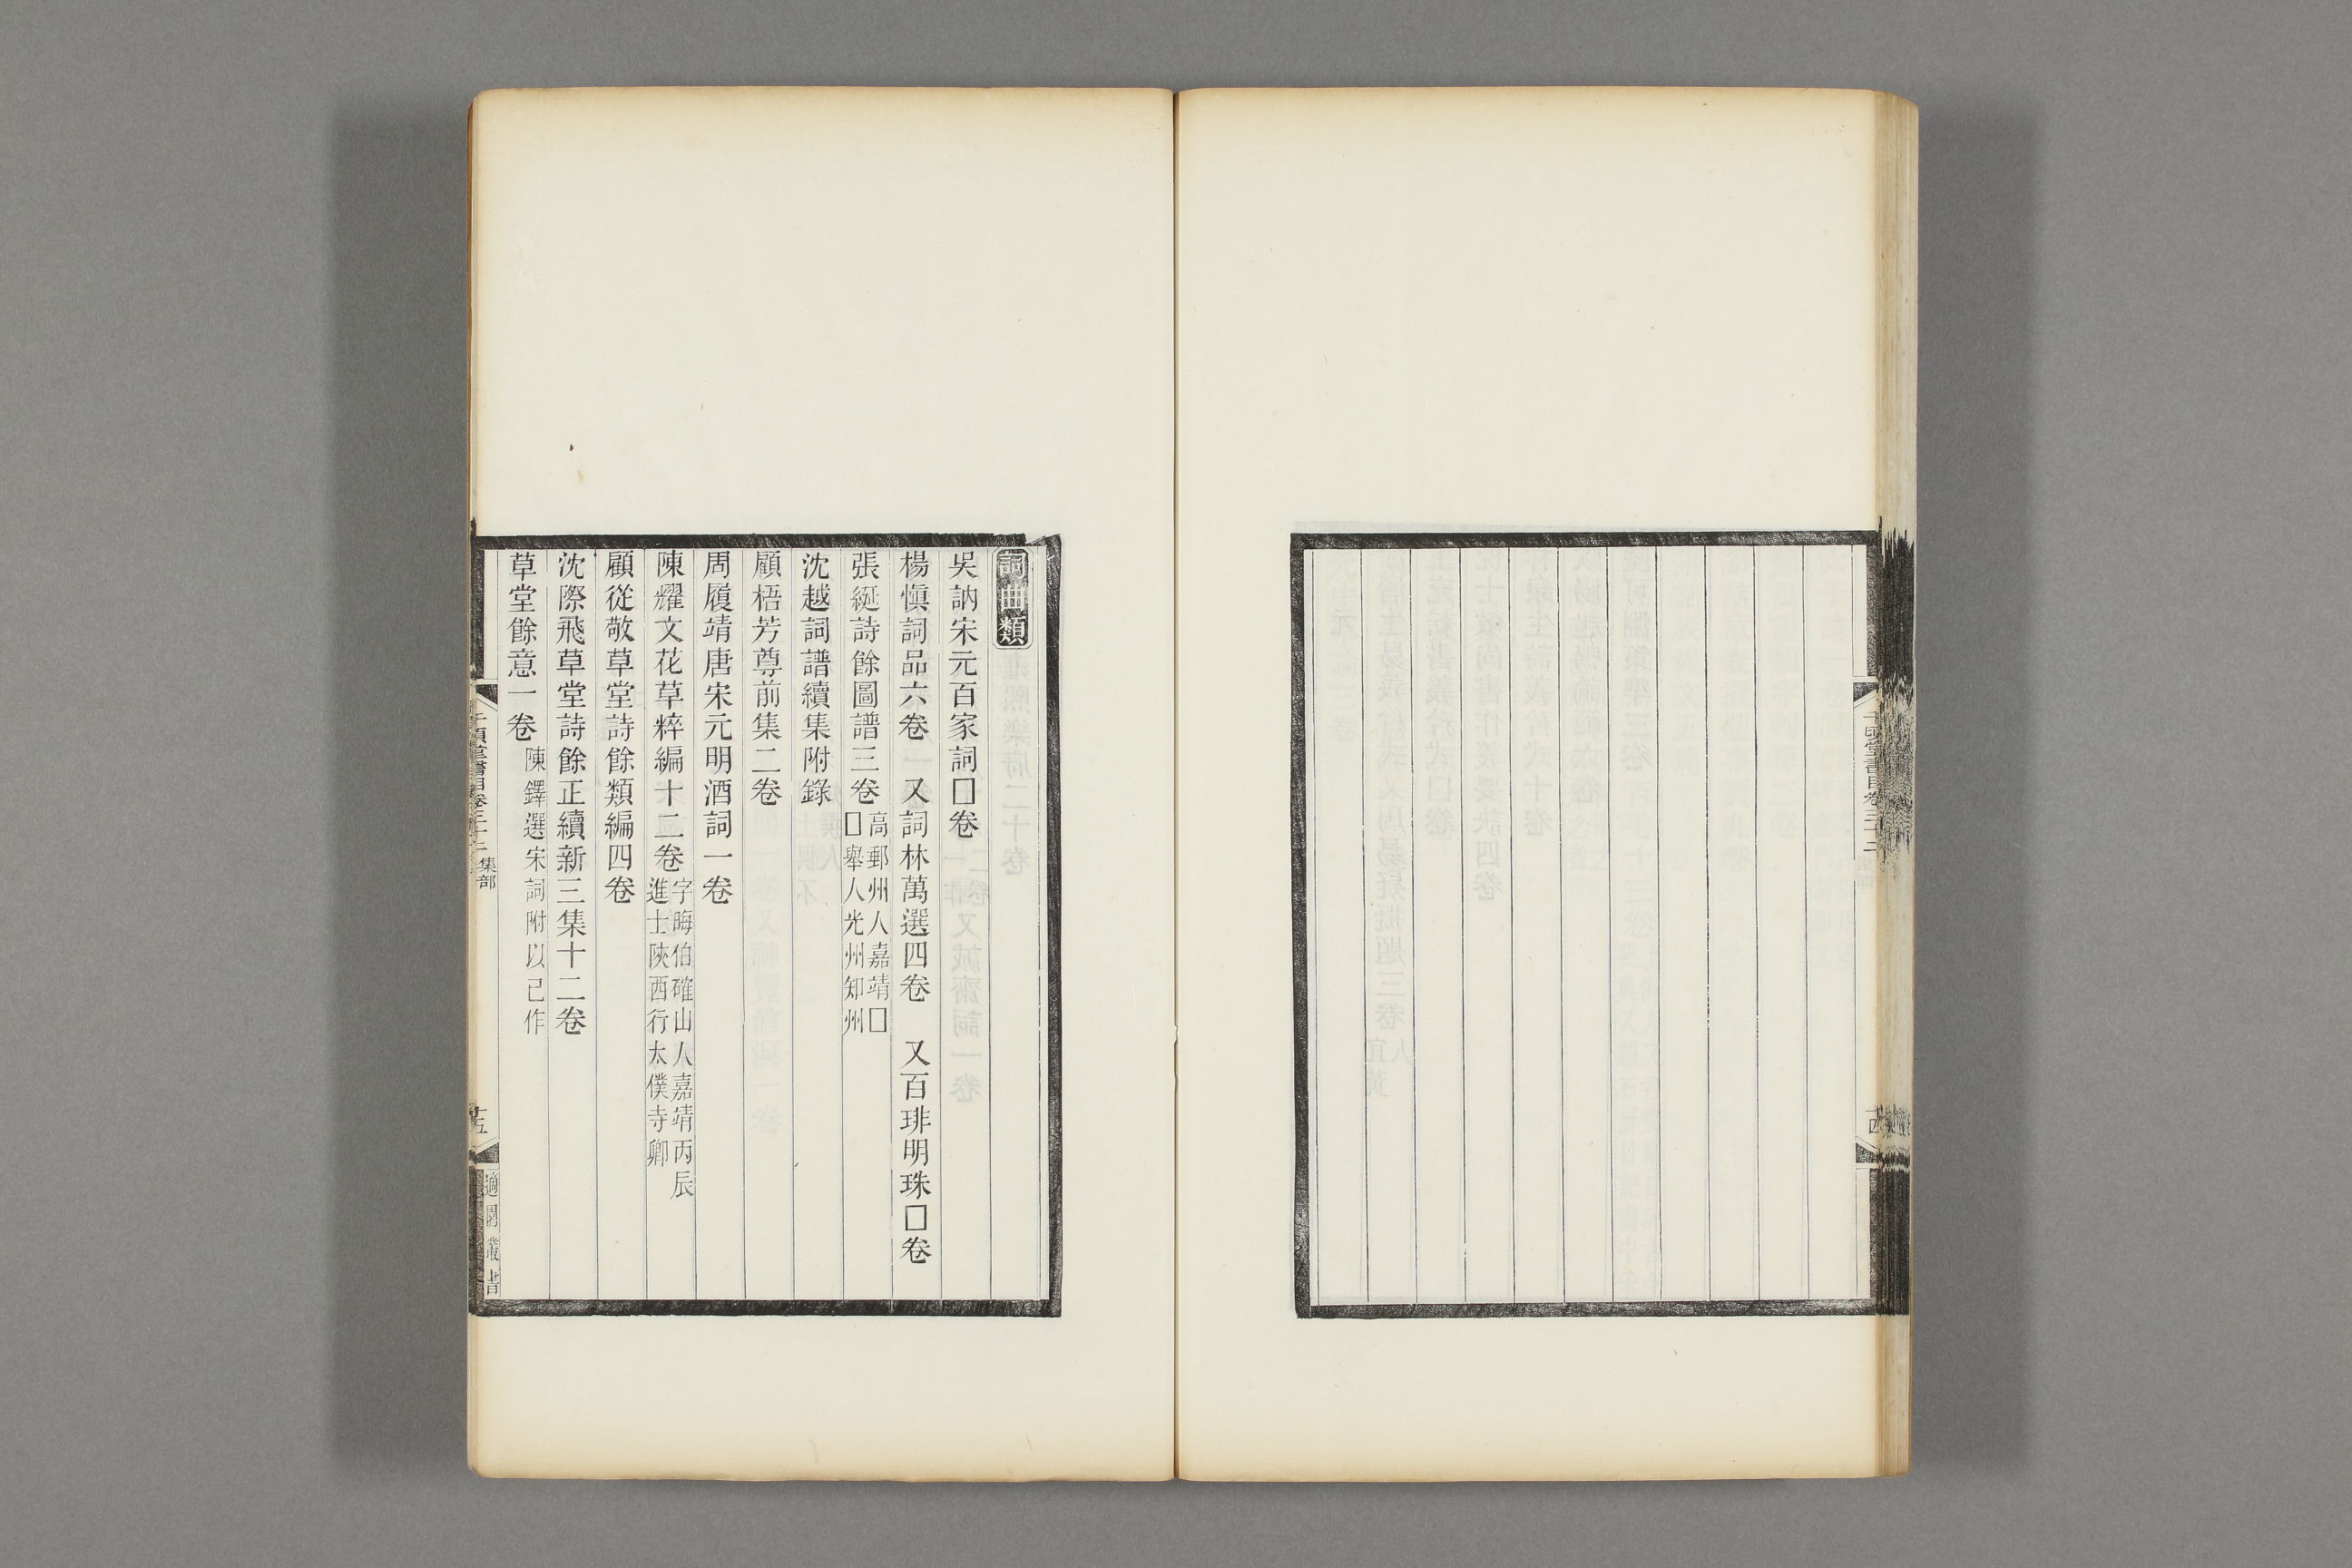 千頃堂書目卷三十二
詞曲類
吳訥宋元百家詞□卷
楊愼詞品六卷　又詞林萬選四卷　又百琲明珠□卷
張綖詩餘圖譜三卷高郵州人嘉靖□□舉人光州知州
沈越詞譜續集附錄
顧梧芳尊前集二卷
周履靖唐宋元明酒詞一卷
陳耀文花草粹編十二卷字晦伯確山人嘉靖丙辰進士陝西行太僕寺卿
顧從敬草堂詩餘類編四卷
沈際飛草堂詩餘正續新三集十二卷
草堂餘意一卷陳鐸選宋詞附以已作
千頃堂書目卷三十二　集部
十五
適園叢書